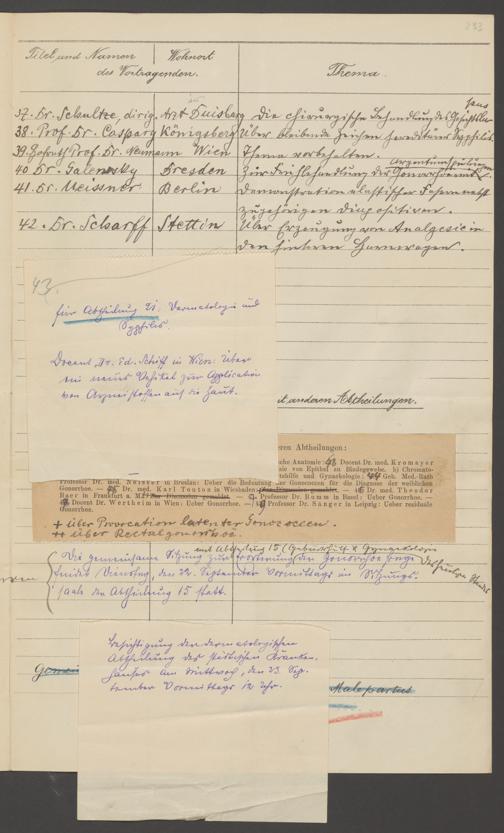 233
Titel und Namen des Vortragenden.
Wohnort
Thema.
37. Dr. Schultze, dirig. Arzt Duisburg Die chirurgische Behandlung des Gesichtslupus
38. Prof. Dr. Caspary Königsberg Über bleibende Zeichen hereditärer Syphilis
39. Hofrath Prof. Dr. Neumann Wien Thema vorbehalten.
40 Dr. Galewsky Dresden Zur Frühbehandlung der Gonorrhoe mit
41. Dr. Meissner Berlin Demonstration elastischer Fasern nebst
zugehörigen Diapositiven.
42. Dr. Scharff Stettin Über Erzeugung von Analgesie in
den hinteren Harnwegen.
43.
für Abtheilung 21. Dermatologie und
Syphilis.
Docent Dr. Ed. Schiff in Wien: Über
ein neues Vehikel zur Application
von Arzneistoffen auf die Haut.
it anderen Abtheilungen.
eren Abtheilungen:
che Anatomie: Docent Dr. med. Kromayer
nie von Epithel zu Bindegewebe. b) Chromato-
urtshilfe und Gynaekologie: 44 Geh. Med.-Rath
Professor Dr. Neisser in Breslau: Ueber die Bedeutung der Gonococcen für die Diagnose der weiblichen
Gonorrhoe. — Dr. med. Karl Touton in Wiesbaden — Dr. med. Theodor
Baer in Frankfurt a. M. — Professor Dr. Bumm in Basel: Ueber Gonorrhoe. —
Docent Dr. Wertheim in Wien: Ueber Gonorrhoe. — Professor Dr. Sänger in Leipzig: Ueber residuale
Gonorrhoe.
+ über Provocation latenter Gonococcen.
++ über Rectalgonorrhoe.
mit Abtheilung 15 (Geburtshilfe & Gynaekologie
Die gemeinsame Sitzung zur Erörterung der Gonorrhoe frage
findet Dienstag, den 22. September Vormittags im Sitzungs-
saale der Abtheilung 15 statt.
Besichtigung der dermatologischen
Abtheilung des städtischen Kranken-
hauses am Mittwoch, den 23. Sep-
tember Vormittags 12 Uhr.
Malepartus